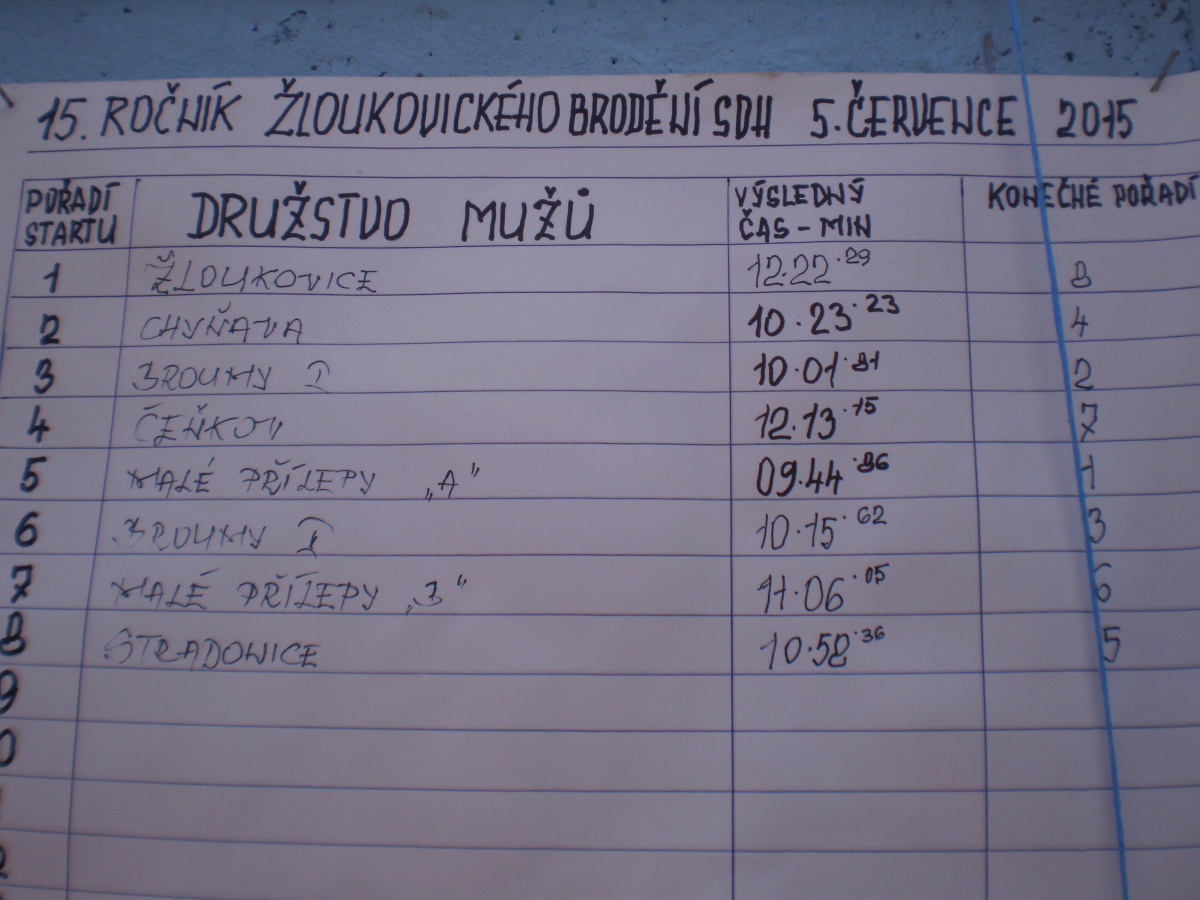 15. ROČNÍK ŽLOUKOVICKÉHO BRODĚNÍ SDH 5. ČERVENCE 2015
POŘADÍ STARTU DRUŽSTVO MUŽŮ VÝSLEDNÝ ČAS - MIN KONEČNÉ POŘADÍ
1 ŽLOUKOVICE 12.22.29 8
2 CHYŇAVA 10.23.23 4
3 BROUMY I 10.01.81 2
4 ČEŇKOV 12.13.15 7
5 MALÉ PŘÍLEPY „A" 09.44.86 1
6 BROUMY I 10.15.62 3
7 MALÉ PŘÍLEPY „B" 11.06.05 6
8 STRADONICE 10.58.36 5
9
0